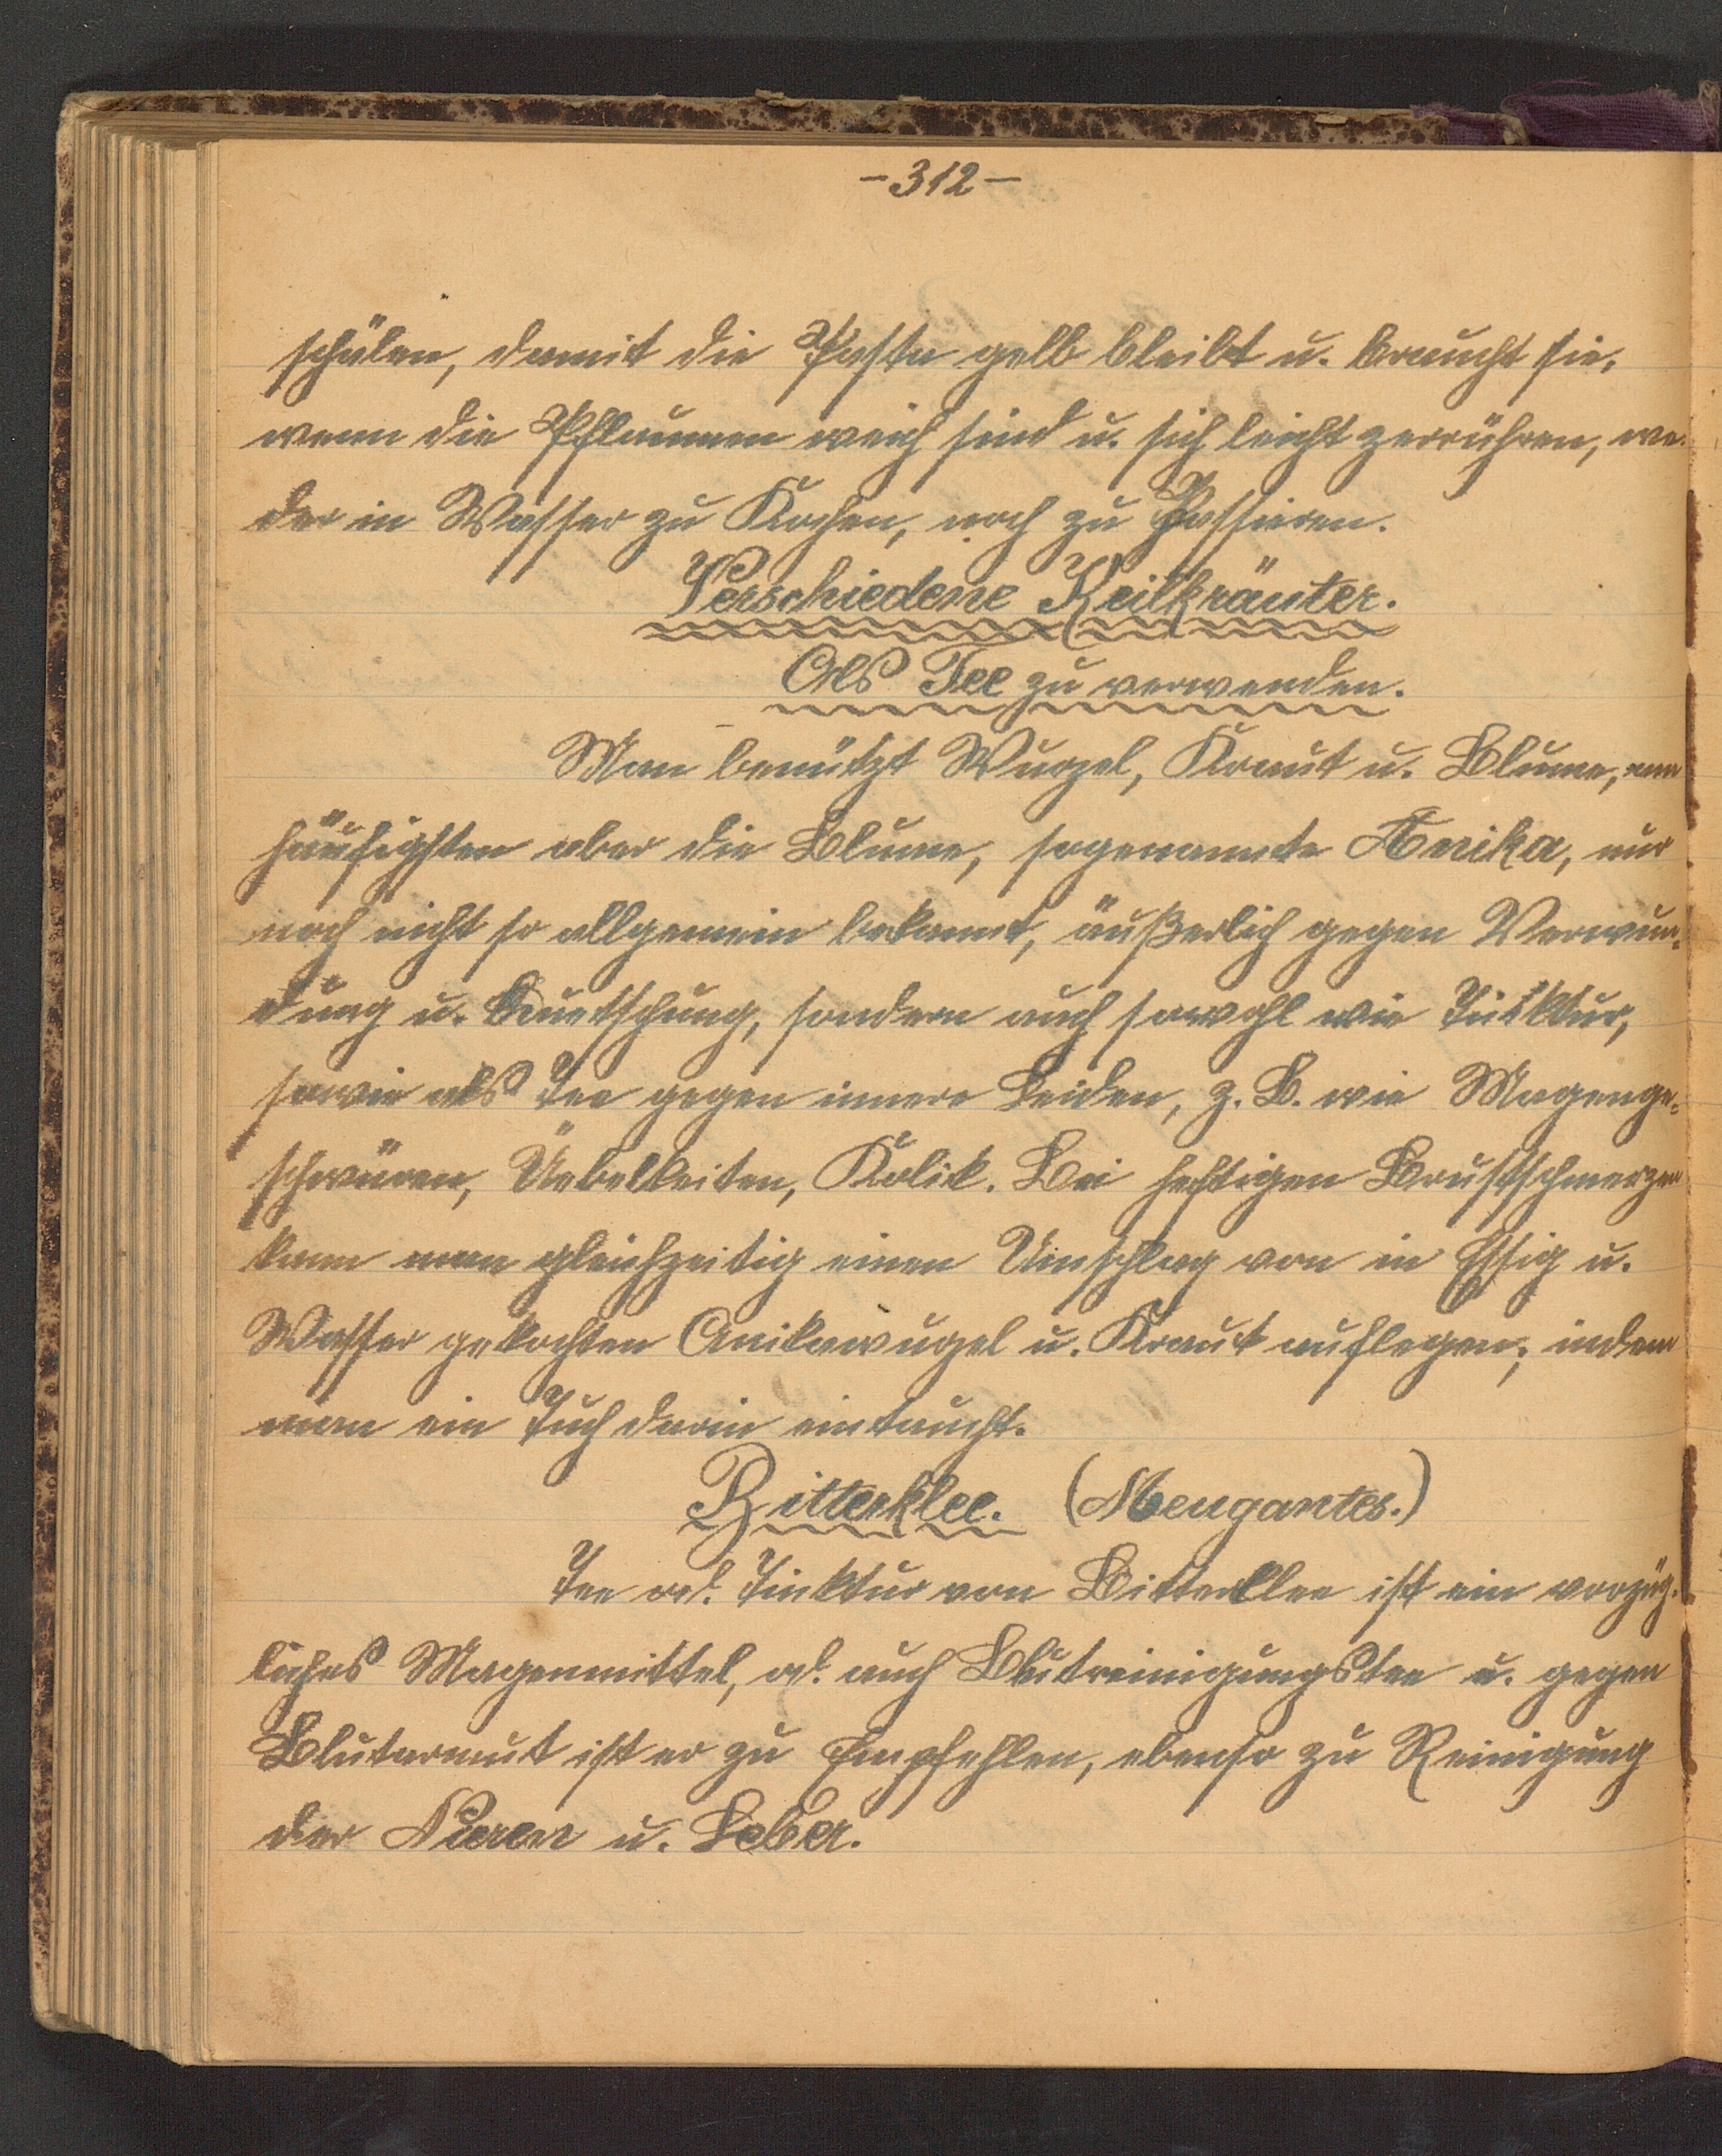 -312-
schälen, damit die Pasta gelb bleibt u. braucht sie,
wenn die Pflaumen weich sind u. sich leicht zerrühren, we-
der in Wasser zu Kochen, noch zu Passieren.
Verschiedene Heilkräuter.
Als Tee zu verwenden.
Man benützt Wurzel, Kraut u. Blume, am
häufigsten aber die Blume, sogenannte Anika, nur
noch nicht so allgemein bekannt, äußerlich gegen Verwun=
dung u. Quetschung, sondern auch sowohl wie Tinktur,
sowie als Tee gegen innere Leiden, z. B. wie Magenge=
schwüren, Üebelkeiten, Kolik. Bei heftigen Brustschmerzen
kann man gleichzeitig einen Umschlag von in Essig u.
Wasser gekochten Anikawuzel u. Kraut auflegen, indem
man ein Tuch darin eintaucht.
Bitterklee. (Meugantes.)
Tee od. Tinktur von Bitterklee ist ein vorzüg-
liches Magenmittel, od. auch Blutreinigungstee u. gegen
Blutarmut ist er zu Empfehlen, ebenso zu Reinigung
der Nieren u. Leber.